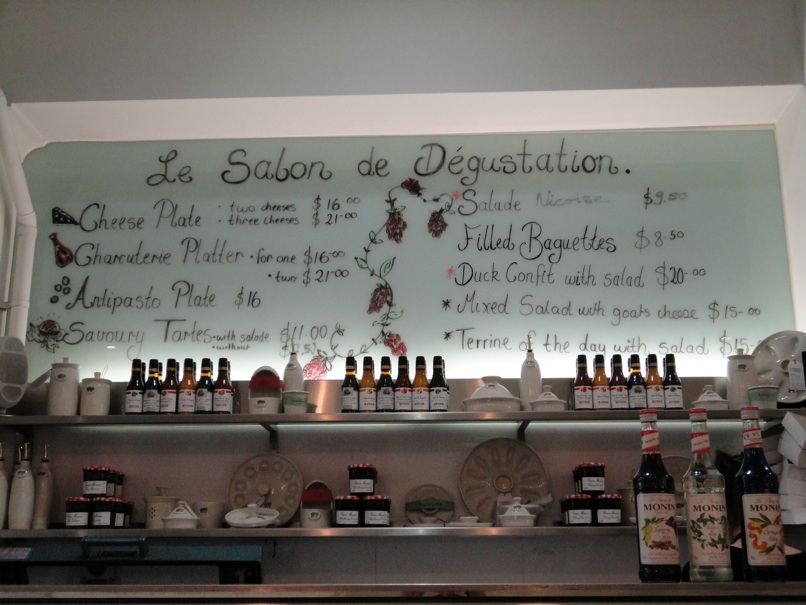 Le Salon de Dégustation.
Cheese Plate · two cheeses $16.00
· three cheeses $21.00
Charcuterie Platter · for one $16.00
· two $21.00
Antipasto Plate $16
Savoury Tartes · with salade $11.00
· without
* Salade Nicoise $9.50
Filled Baguettes $8.50
* Duck Confit with salad $20.00
* Mixed Salad with goats cheese $15.00
* Terrine of the day with salad $15.00
MONIN
MONIN
MONIN